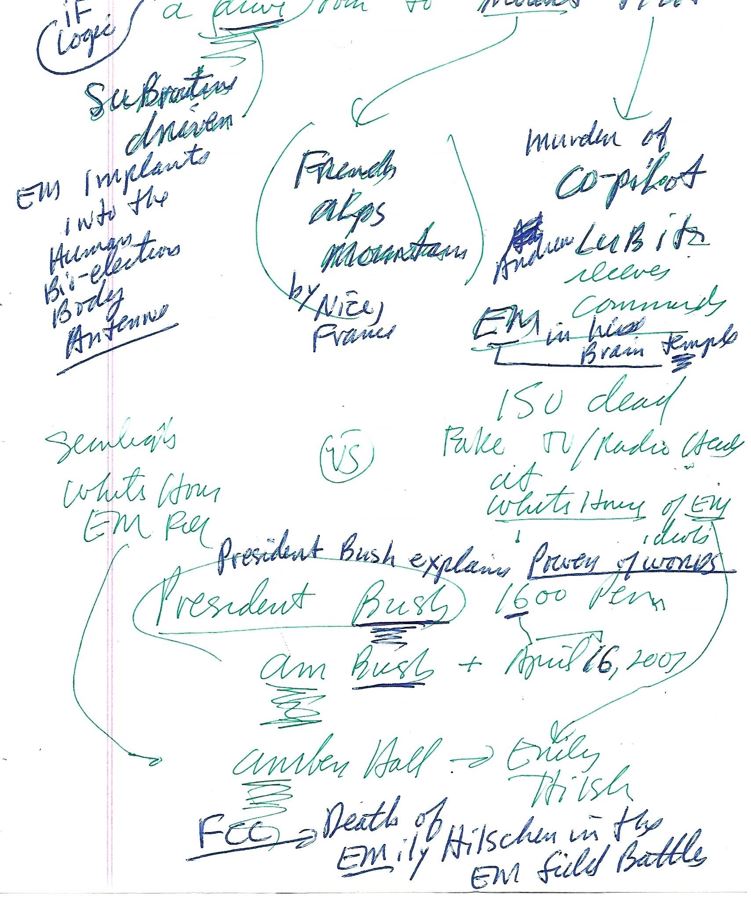 iF
Logic
a drive
SuBroutine
driven
EM Implants
into the
Human
Bio-electron
Body
Antenna
French
alps
mountain
by Nice,
France
murder of
Co-pilot
Andrew LuBitz
receves
Commands
EM in his
Brain temple
150 dead
VS
Fake TV/Radio
at
White House of EM
idiots
White Hous
EM
President Bush explains Power of words
President Bush 1600 Penn
am Bush + April 16, 2007
amber Hall → Emily
Hilsh
FCC → Death of
EMily Hilscher in the
EM field Battles